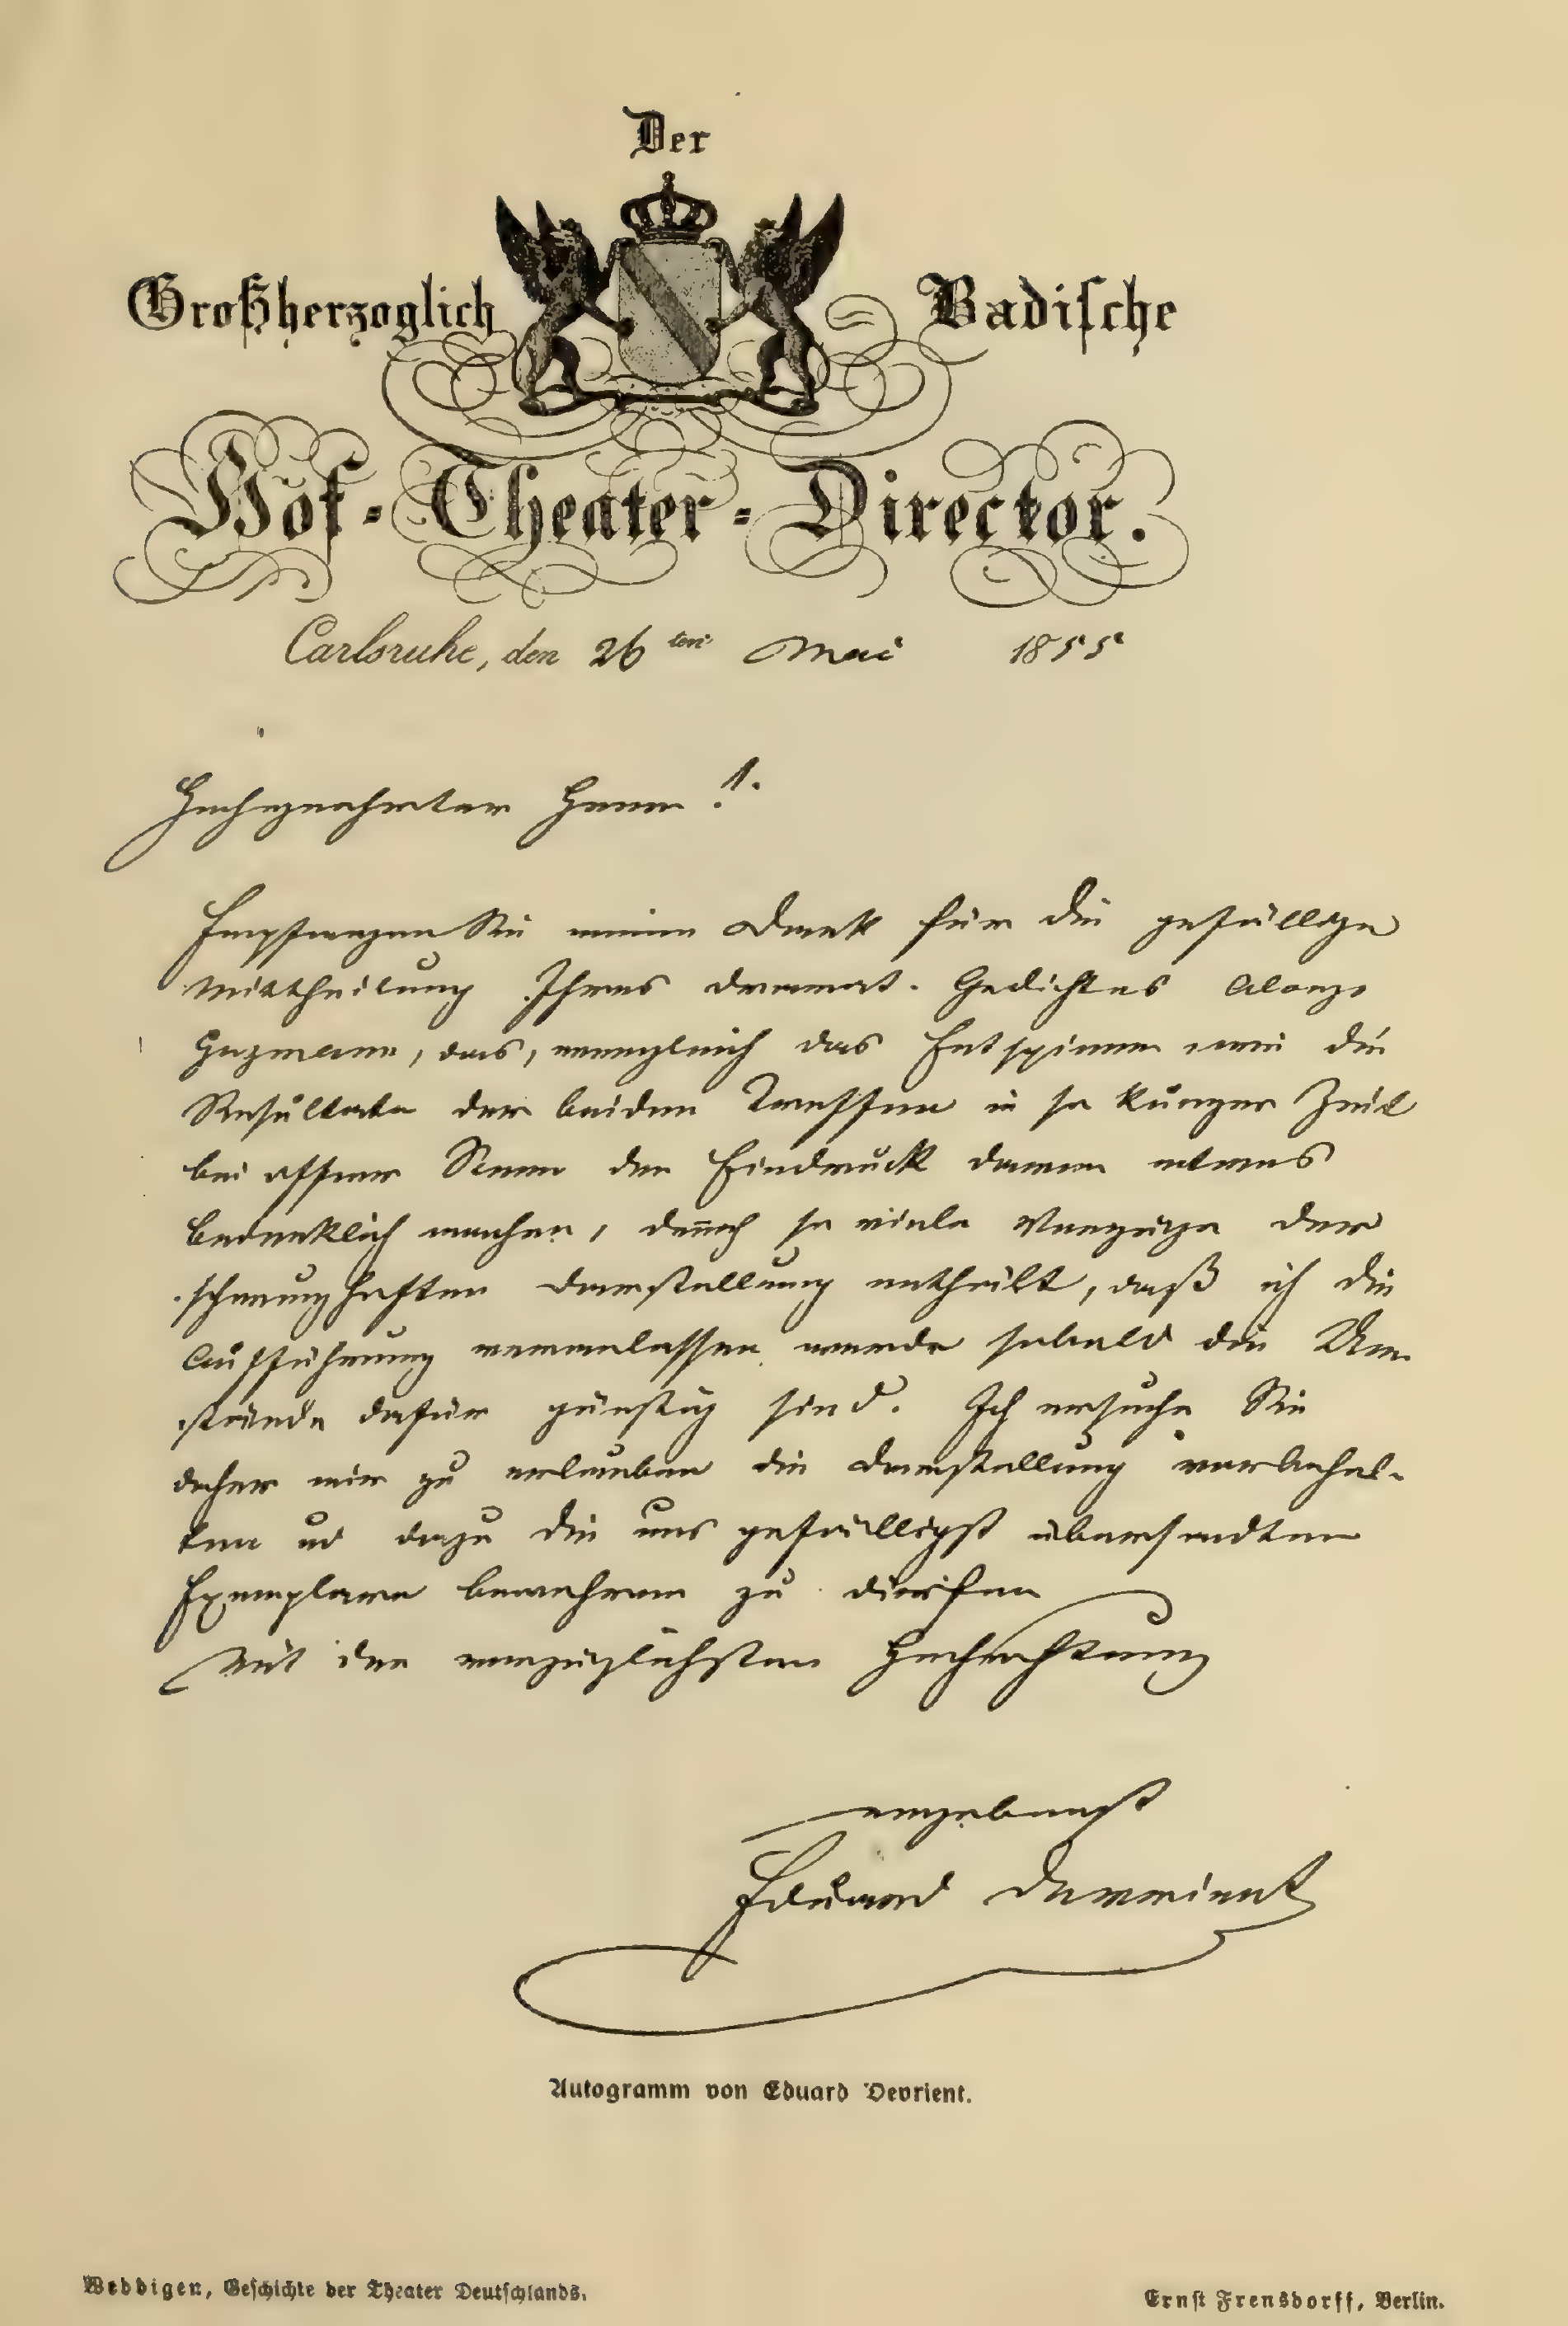 Der
Großherzoglich Badische
Hof-Theater-Director.
Carlsruhe, den 26ten Mai 1855
Hochgeehrter Herr!
Empfangen Sie meinen Dank für die gefällige
Mittheilung Ihres dramat. Gedichtes Alonzo
Guzmann, das, wenngleich das Entspinnen wie die
Resultate der beiden Treffen in so kurzer Zeit
bei offner Scene den Eindruck davon etwas
bedenklich machen, dennoch so viele Vorzüge der
schwunghaften Darstellung enthält, daß ich die
Aufführung veranlassen werde sobald die Um-
stände dafür günstig sind. Ich ersuche Sie
daher mir zu erlauben die Darstellung vorbehal-
ten und dazu die uns gefälligst übersandten
Exemplare bewahren zu dürfen
Mit der vorzüglichsten Hochachtung
ergebenst
Eduard Devrient
Autogramm von Eduard Devrient.
Weddigen, Geschichte der Theater Deutschlands.
Ernst Frensdorff, Berlin.